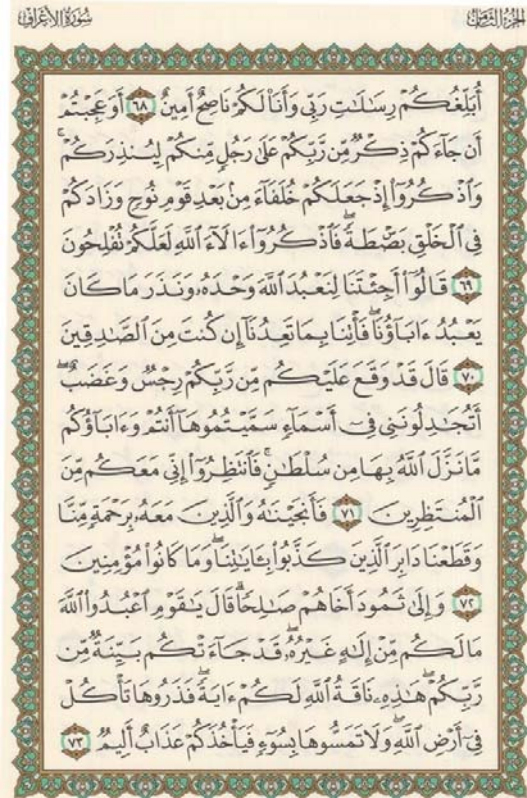 الجزء الثامن
سورة الأعراف
أُبَلِّغُكُمْ رِسَٰلَٰتِ رَبِّي وَأَنَا۠ لَكُمْ نَاصِحٌ أَمِينٌ ٦٨ أَوَعَجِبْتُمْ
أَن جَآءَكُمْ ذِكْرٌ مِّن رَّبِّكُمْ عَلَىٰ رَجُلٍ مِّنكُمْ لِيُنذِرَكُمْ ۚ
وَٱذْكُرُوٓا۟ إِذْ جَعَلَكُمْ خُلَفَآءَ مِنۢ بَعْدِ قَوْمِ نُوحٍ وَزَادَكُمْ
فِي ٱلْخَلْقِ بَصْۜطَةً ۖ فَٱذْكُرُوٓا۟ ءَالَآءَ ٱللَّهِ لَعَلَّكُمْ تُفْلِحُونَ
٦٩ قَالُوٓا۟ أَجِئْتَنَا لِنَعْبُدَ ٱللَّهَ وَحْدَهُۥ وَنَذَرَ مَا كَانَ
يَعْبُدُ ءَابَآؤُنَا ۖ فَأْتِنَا بِمَا تَعِدُنَآ إِن كُنتَ مِنَ ٱلصَّٰدِقِينَ
٧٠ قَالَ قَدْ وَقَعَ عَلَيْكُم مِّن رَّبِّكُمْ رِجْسٌ وَغَضَبٌ ۖ
أَتُجَٰدِلُونَنِي فِيٓ أَسْمَآءٍ سَمَّيْتُمُوهَآ أَنتُمْ وَءَابَآؤُكُم
مَّا نَزَّلَ ٱللَّهُ بِهَا مِن سُلْطَٰنٍ ۚ فَٱنتَظِرُوٓا۟ إِنِّي مَعَكُم مِّنَ
ٱلْمُنتَظِرِينَ ٧١ فَأَنجَيْنَٰهُ وَٱلَّذِينَ مَعَهُۥ بِرَحْمَةٍ مِّنَّا
وَقَطَعْنَا دَابِرَ ٱلَّذِينَ كَذَّبُوا۟ بِـَٔايَٰتِنَا ۖ وَمَا كَانُوا۟ مُؤْمِنِينَ
٧٢ وَإِلَىٰ ثَمُودَ أَخَاهُمْ صَٰلِحًا ۗ قَالَ يَٰقَوْمِ ٱعْبُدُوا۟ ٱللَّهَ
مَا لَكُم مِّنْ إِلَٰهٍ غَيْرُهُۥ ۖ قَدْ جَآءَتْكُم بَيِّنَةٌ مِّن
رَّبِّكُمْ ۖ هَٰذِهِۦ نَاقَةُ ٱللَّهِ لَكُمْ ءَايَةً ۖ فَذَرُوهَا تَأْكُلْ
فِيٓ أَرْضِ ٱللَّهِ ۖ وَلَا تَمَسُّوهَا بِسُوٓءٍ فَيَأْخُذَكُمْ عَذَابٌ أَلِيمٌ ٧٣